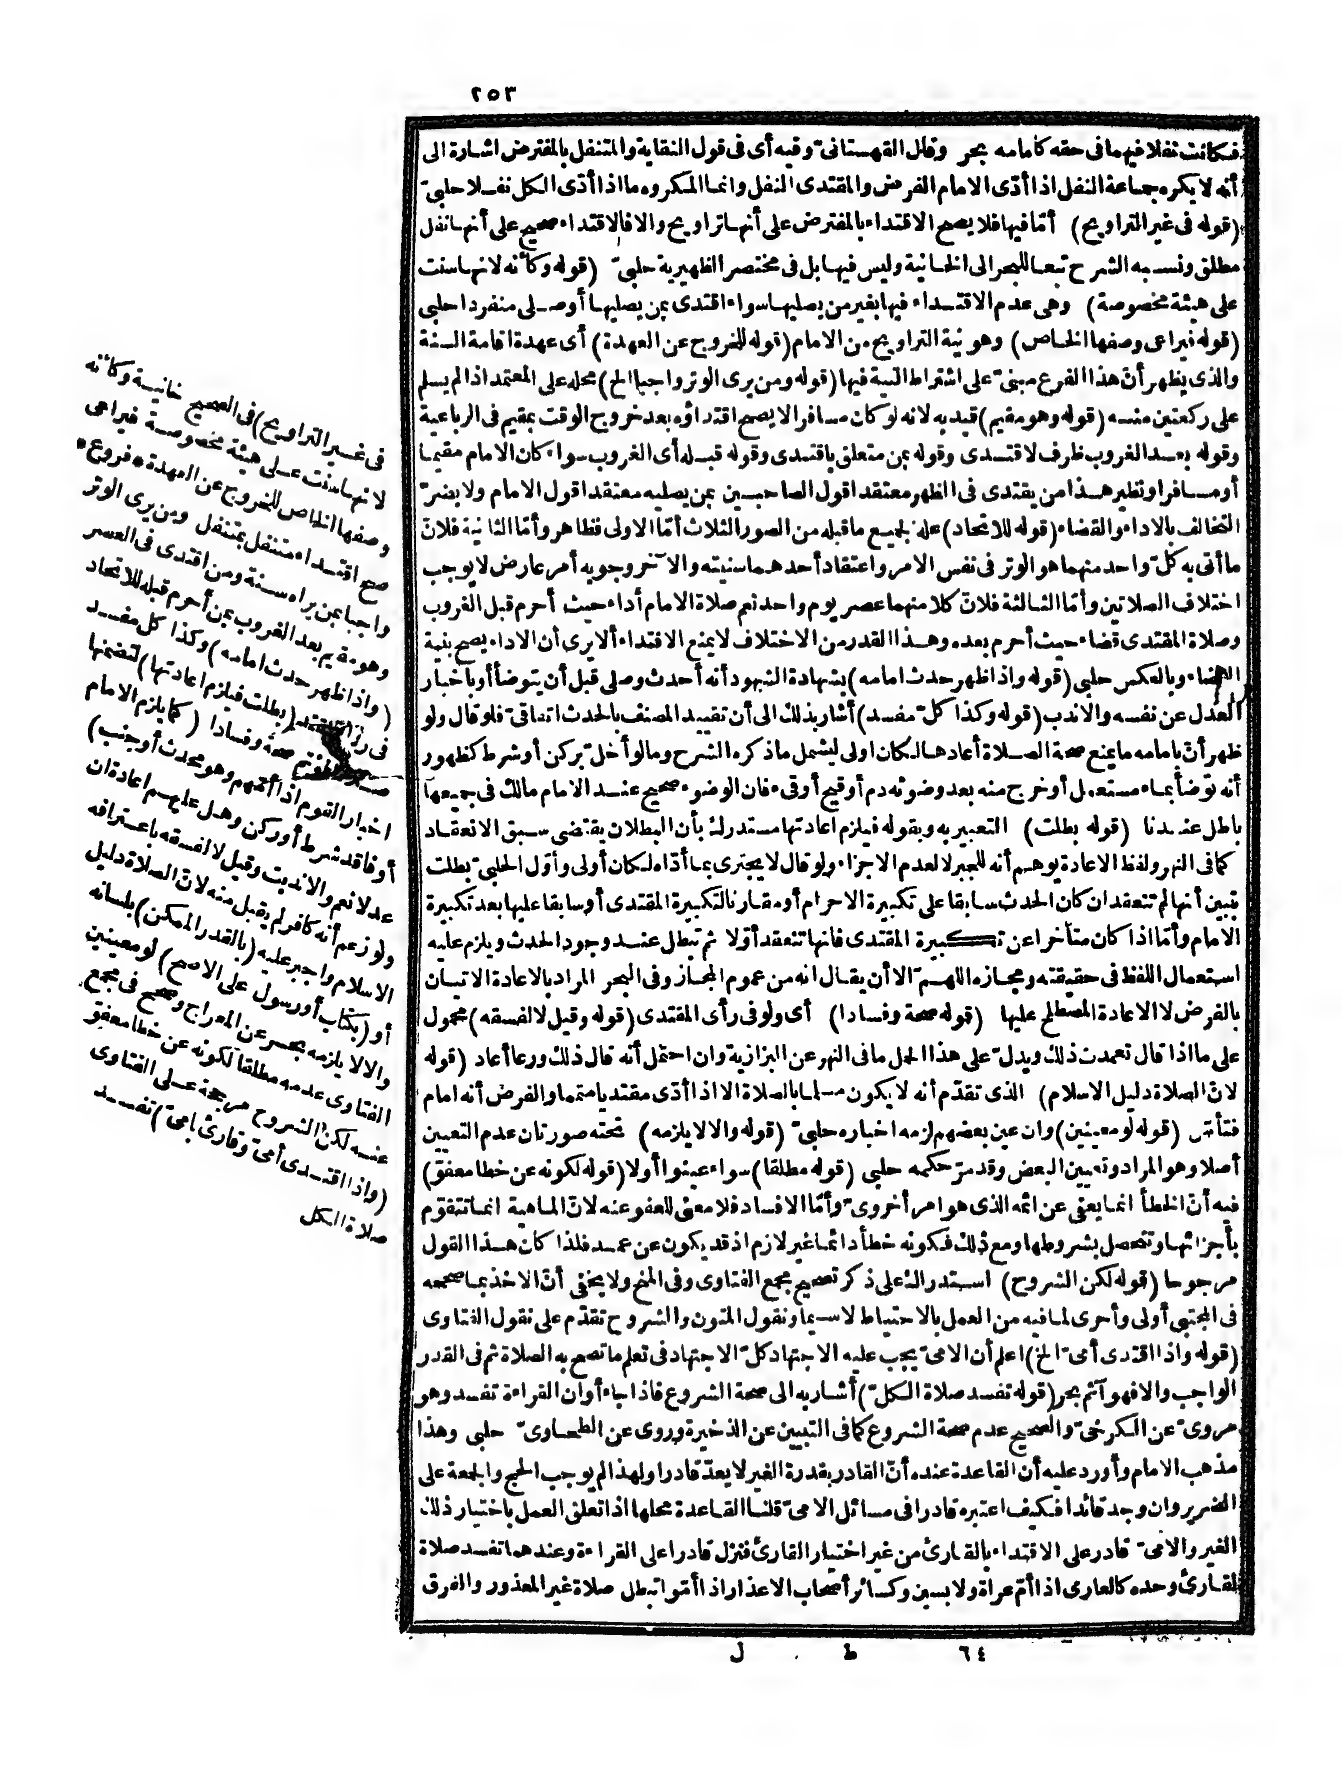 ٢٥٣
فكانت نفلا فيهما فى حقه كامامه بحر وقال القهستانى وفيه أى فى قول النقاية والمتنفل بالمفترض اشارة الى
أنه لا يكره جماعة النفل اذا أدّى الامام الفرض والمقتدى النفل وانما المكروه ما اذا أدّى الكل نفلا حلبى
(قوله فى غير التراويح) أمّا فيها فلا يصح الاقتداء بالمفترض على أنها تراويح والا فالاقتداء صحيح على أنها نفل
مطلق ونسبه الشرح تبعا للبحر الى الخانية وليس فيها بل فى مختصر الظهيرية حلبى (قوله وكأنه لانها سنت
على هيئة مخصوصة) وهى عدم الاقتداء فيها بغير من يصليها سواء اقتدى بمن يصليها أو صلى منفردا حلبى
(قوله فيراعى وصفها الخاص) وهو نية التراويح من الامام (قوله للخروج عن العهدة) أى عهدة اقامة السنة
والذى يظهر أنّ هذا الفرع مبنىّ على اشتراط النية فيها (قوله ومن يرى الوتر واجبا الخ) محله على المعتمد اذا لم يسلم
على ركعتين منسه (قوله وهو مقيم) قيد به لانه لو كان مسافرا لا يصح اقتداؤه بعد خروج الوقت بمقيم فى الرباعية
وقوله بعد الغروب ظرف لاقتدى وقوله بمن متعلق باقتدى وقوله قبله أى الغروب سواء كان الامام مقيما
أو مسافرا ونظير هذا من يقتدى فى الظهر معتقدا قول الصاحبين بمن يصليه معتقدا قول الامام ولا يضرّ
التخالف بالاداء والقضاء (قوله للاتحاد) علة لجميع ما قبله من الصور الثلاث أمّا الاولى فظاهر وأمّا الثانية فلانّ
ما أتى به كلّ واحد منهما هو الوتر فى نفس الامر واعتقاد أحدهما سنيته والآخر وجوبه أمر عارض لا يوجب
اختلاف الصلاتين وأمّا الثالثة فلانّ كلا منهما عصر يوم واحد نعم صلاة الامام أداء حيث أحرم قبل الغروب
وصلاة المقتدى قضاء حيث أحرم بعده وهذا القدر من الاختلاف لا يمنع الاقتداء ألا يرى أن الاداء يصح بنية
القضاء وبالعكس حلبى (قوله واذا ظهر حدث امامه) بشهادة الشهود أنه أحدث وصلى قبل أن يتوضأ أو باخبار
العدل عن نفسه والا ندب (قوله وكذا كلّ مفسد) أشار بذلك الى أن تقييد المصنف بالحدث اتفاقىّ فلو قال ولو
ظهر أنّ بامامه ما يمنع صحة الصلاة أعادها لكان اولى ليشمل ما ذكره الشرح وما لو أخلّ بركن أو شرط كظهور
أنه توضأ بماء مستعمل أو خرج منه بعد وضوئه دم أو قيح أو قىء فان الوضوء صحيح عند الامام مالك فى جميعها
باطل عندنا (قوله بطلت) التعبير به وبقوله فيلزم اعادتها مستدرك بأن البطلان يقتضى سبق الانعقاد
كما فى النهر ولفظ الاعادة يوهم أنه للجبر لا لعدم الاجزاء ولو قال لا يجتزى بما أدّاه لكان أولى وأوّل الحلبىّ بطلت
بتبين أنها لم تنعقد ان كان الحدث سابقا على تكبيرة الاحرام أو مقارنا لتكبيرة المقتدى أو سابقا عليها بعد تكبيرة
الامام وأمّا اذا كان متأخرا عن تكبيرة المقتدى فانها تنعقد أوّلا ثم تبطل عند وجود الحدث ويلزم عليه
استعمال اللفظ فى حقيقته ومجازه اللهمّ الا أن يقال انه من عموم المجاز وفى البحر المراد بالاعادة الاتيان
بالفرض لا الاعادة المصطلح عليها (قوله صحة وفسادا) أى ولو فى رأى المقتدى (قوله وقيل لا لفسقه) محمول
على ما اذا قال تعمدت ذلك ويدلّ على هذا الحمل ما فى النهر عن البزازية وان احتمل أنه قال ذلك ورعا أعاد (قوله
لانّ الصلاة دليل الاسلام) الذى تقدّم أنه لا يكون مسلما بالصلاة الا اذا أدّى مقتديا متمما والفرض أنه امام
فتأمّل (قوله لو معينين) وان عين بعضهم لزمه اخباره حلبىّ (قوله والا لا يلزمه) تحته صورتان عدم التعيين
أصلا وهو المراد وتعيين البعض وقد مرّ حكمه حلبى (قوله مطلقا) سواء عينوا أولا (قوله لكونه عن خطا معفوّ)
فيه أنّ الخطأ انما يعفى عن اثمه الذى هو امر أخروىّ وأمّا الافساد فلا معنى للعفو عنه لانّ الماهية انما تتقوم
بأجزائها وتحصل بشروطها ومع ذلك فكونه خطأ دائما غير لازم اذ قد يكون عن عمد فلذا كان هذا القول
مرجوحا (قوله لكن الشروح) استدراك على ذكر تصحيح مجمع الفتاوى وفى المنح ولا يخفى أنّ الاخذ بما صححه
فى المجتبى أولى وأحرى لما فيه من العمل بالاحتياط لا سيما ونقول المتون والشروح تقدّم على نقول الفتاوى
(قوله واذا اقتدى أمىّ الخ) اعلم أن الامىّ يجب عليه الاجتهاد كلّ الاجتهاد فى تعلم ما تصح به الصلاة ثم فى القدر
الواجب والا فهو آثم بحر (قوله تفسد صلاة الكلّ) أشار به الى صحة الشروع فاذا جاء أوان القراءة تفسد وهو
مروىّ عن الكرخىّ والصحيح عدم صحة الشروع كما فى التبيين عن الذخيرة وروى عن الطحاوىّ حلبى وهذا
مذهب الامام وأورد عليه أن القاعدة عنده أنّ القادر بقدرة الغير لا يعدّ قادرا ولهذا لم يوجب الحج والجمعة على
الضرير وان وجد قائدا فكيف اعتبره قادرا فى مسائل الامىّ قلنا القاعدة محلها اذا تعلق العمل باختيار ذلك
الغير والامىّ قادر على الاقتداء بالقارئ من غير اختيار القارئ فنزل قادرا على القراءة وعندهما تفسد صلاة
القارئ وحده كالعارى اذا أمّ عراة ولابسين وكسائر أصحاب الاعذار اذا أمّوا تبطل صلاة غير المعذور والفرق
فى غير التراويح) فى الصحيح خانية وكأنه
لانها سنت على هيئة مخصوصة فيراعى
وصفها الخاص للخروج عن العهدة * فروع *
صح اقتداء متنفل بمتنفل ومن يرى الوتر
واجبا بمن يراه سنة ومن اقتدى فى العصر
وهو مقيم بعد الغروب بمن أحرم قبله للاتحاد
(واذا ظهر حدث امامه) وكذا كل مفسد
فى رأى مقتد (بطلت فيلزم اعادتها) لتضمنها
صلاة المؤتم صحة وفسادا (كما يلزم الامام
اخبار القوم اذا أمّهم وهو محدث أو جنب)
أو فاقد شرط أو ركن وهل عليهم اعادة ان
عدلا نعم والا ندبت وقيل لا لفسقه باعترافه
ولو زعم أنه كافر لم يقبل منه لانّ الصلاة دليل
الاسلام واجبر عليه (بالقدر الممكن) بلسانه
أو (بكتاب أو رسول على الاصح) لو معينين
والا لا يلزمه بحر عن المعراج وصحح فى مجمع
الفتاوى عدمه مطلقا لكونه عن خطا معفوّ
عنه لكن الشروح مرجحة على الفتاوى
(واذا اقتدى أمىّ وقارئ بامىّ) تفسد
صلاة الكل
٦٤ ط ل